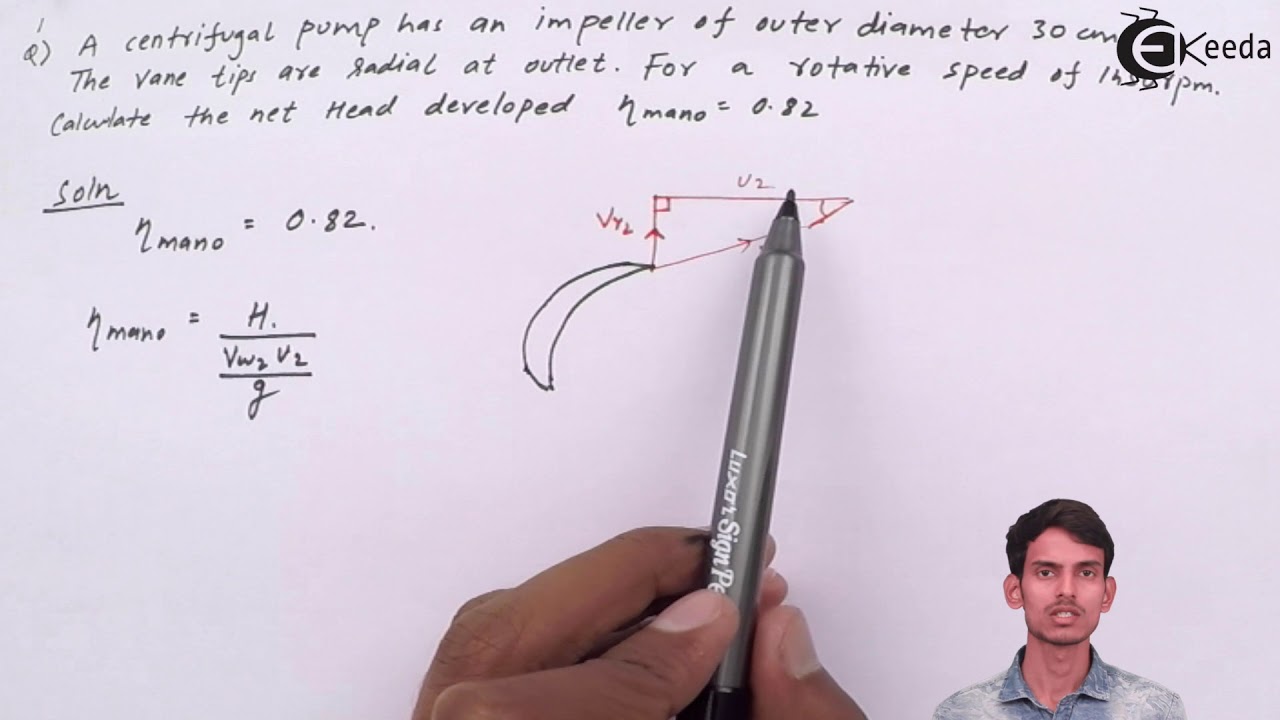 1
Q) A centrifugal pump has an impeller of outer diameter 30 cm
The vane tips are radial at outlet. For a rotative speed of rpm.
Calculate the net Head developed ηmano = 0.82
Soln
ηmano = 0.82.
ηmano = H.
Vw2 U2
g
U2
Vr2
Luxor Sign Pe
eKeeda